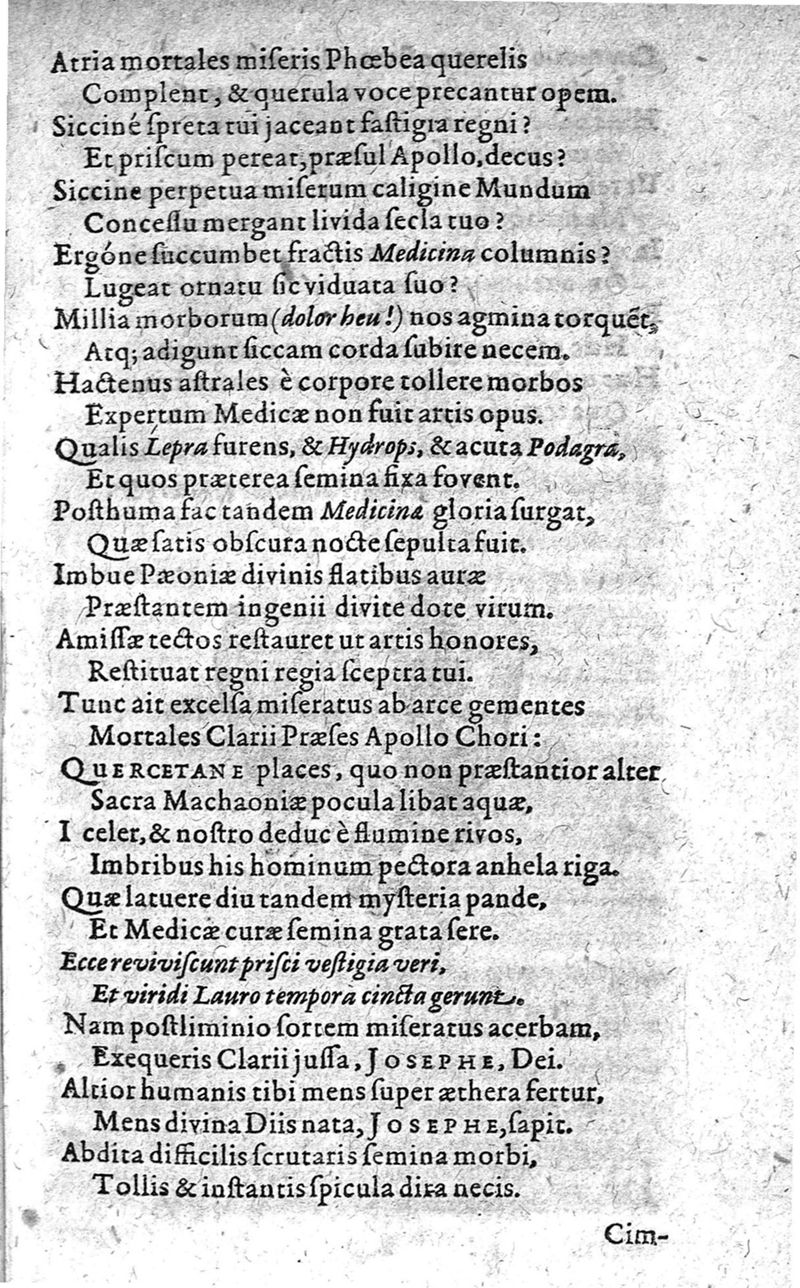 Atria mortales miſeris Phœbea querelis
Complent, & querula voce precantur opem.
Siccinè ſpreta tui jaceant faſtigia regni?
Et priſcum pereat, præſul Apollo, decus?
Siccine perpetua miſerum caligine Mundum
Conceſſu mergant livida ſecla tuo?
Ergóne ſuccumbet fractis Medicina columnis?
Lugeat ornatu ſic viduata ſuo?
Millia morborum (dolor heu!) nos agmina torquēt,
Atq; adigunt ſiccam corda ſubire necem.
Hactenus aſtrales è corpore tollere morbos
Expertum Medicæ non fuit artis opus.
Qualis Lepra furens, & Hydrops, & acuta Podagra,
Et quos præterea ſemina fixa fovent.
Poſthuma fac tandem Medicina gloria ſurgat,
Quæ ſatis obſcura nocte ſepulta fuit.
Imbue Pæoniæ divinis flatibus auræ
Præſtantem ingenii divite dote virum.
Amiſſæ tectos reſtauret ut artis honores,
Reſtituat regni regia ſceptra tui.
Tunc ait excelſa miſeratus ab arce gementes
Mortales Clarii Præſes Apollo Chori:
QUERCETANE places, quo non præſtantior alter
Sacra Machaoniæ pocula libat aquæ,
I celer, & noſtro deduc è flumine rivos,
Imbribus his hominum pectora anhela riga.
Quæ latuere diu tandem myſteria pande,
Et Medicæ curæ ſemina grata ſere.
Ecce reviviſcunt priſci veſtigia veri,
Et viridi Lauro tempora cincta gerunt.
Nam poſtliminio ſortem miſeratus acerbam,
Exequeris Clarii juſſa, JOSEPHE, Dei.
Altior humanis tibi mens ſuper æthera fertur,
Mens divina Diis nata, JOSEPHE, ſapit.
Abdita difficilis ſcrutaris ſemina morbi,
Tollis & inſtantis ſpicula dira necis.
Cim-